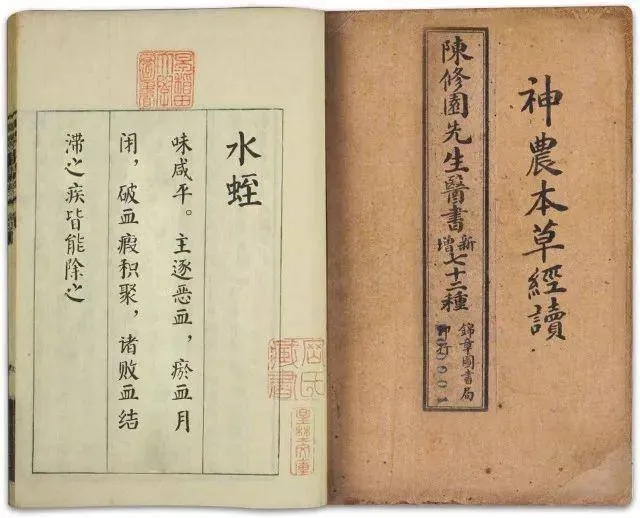 神農本草經讀
陳修園先生醫書新增七十二種
錦章圖書局印行
水蛭
味咸平。主逐恶血，瘀血月
闭，破血瘕积聚，诸败血结
滞之疾皆能除之